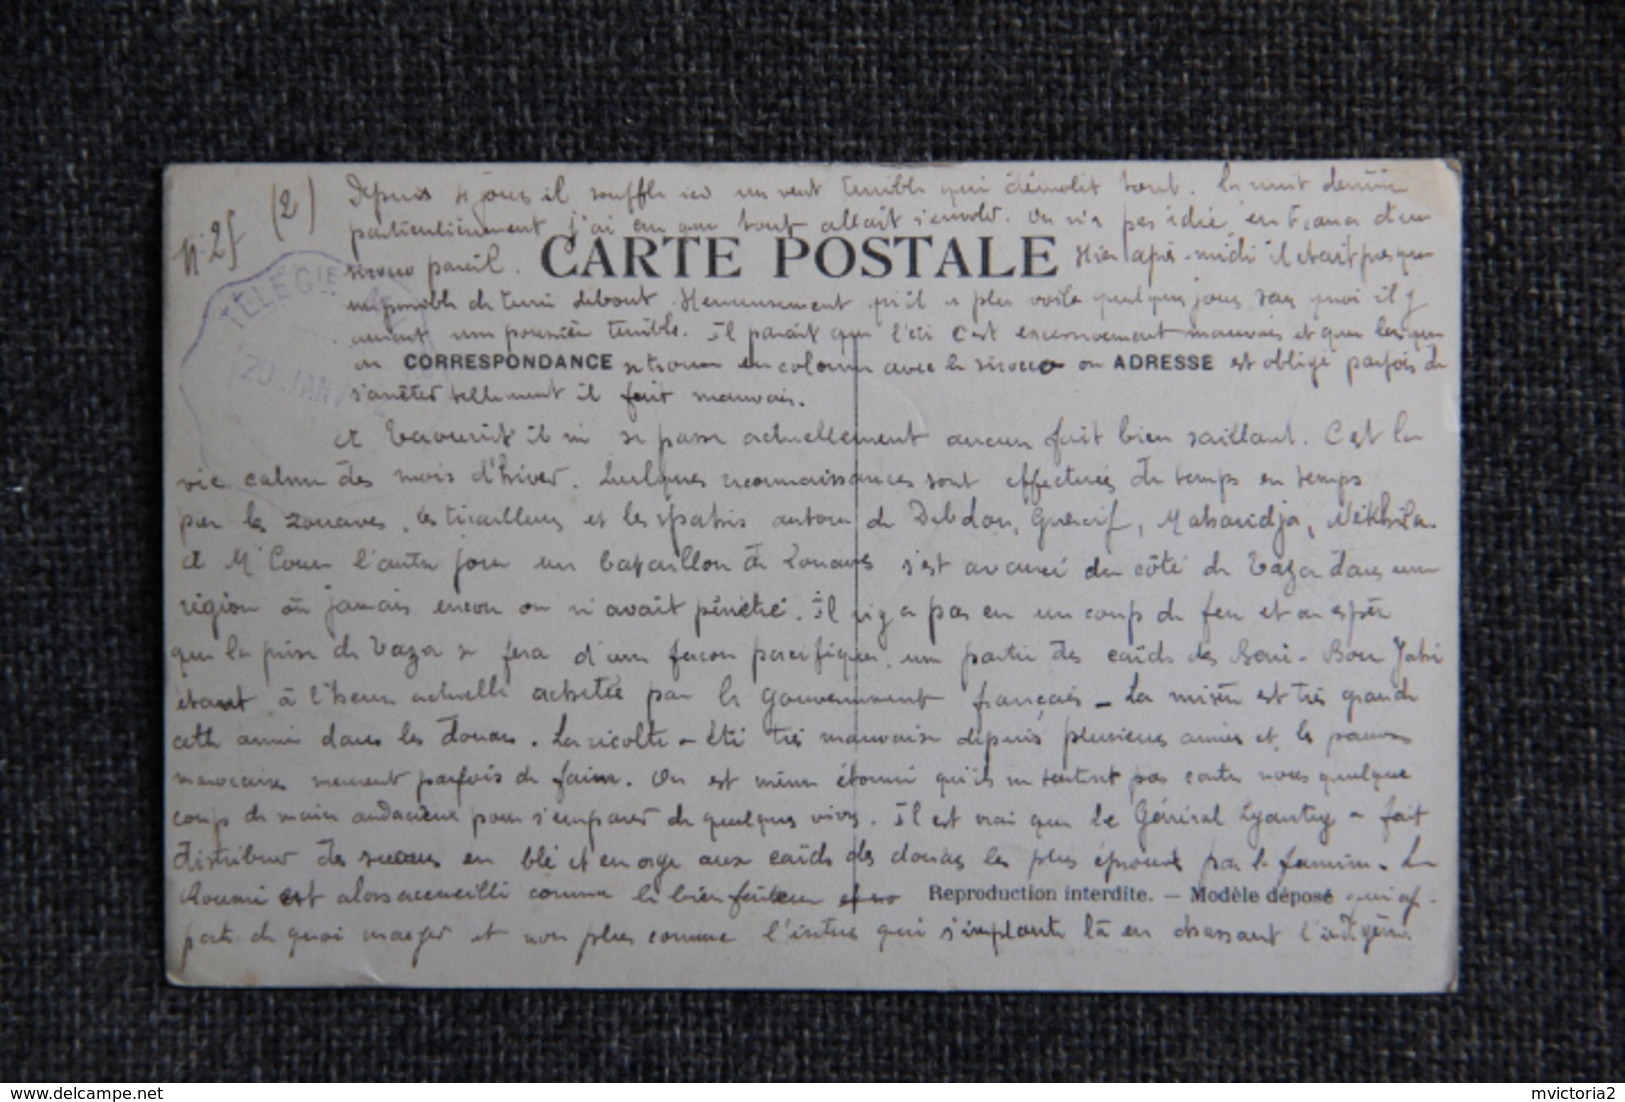 N° 25
(2)
Depuis 4 jours il souffle ici un vent terrible qui démolit tout. La nuit dernière
particulièrement j'ai cru que tout allait s'envoler. On n'a pas idée en France d'un
siroco pareil.
CARTE POSTALE
Hier après-midi il était presque
impossible de tenir debout. Heureusement qu'il a plu voilà quelques jours sans quoi il y
aurait une poussière terrible. Il parait que l'été c'est excessivement mauvais et que lorsque
on
CORRESPONDANCE
se trouve en colonne avec le siroco on
ADRESSE
est obligé parfois de
s'arrêter tellement il fait mauvais.
TELEGIE
20 JANV
A Taourirt il ne se passe actuellement aucun fait bien saillant. C'est la
vie calme des mois d'hiver. Quelques reconnaissances sont effectuées de temps en temps
par les zouaves, les tirailleurs et les spahis autour de Debdou, Guercif, Maharidja, Nekhila
et M' Coun l'autre jour un bataillon de Zouaves s'est avancé du côté de Taza dans une
région où jamais encore on n'avait pénétré. Il n'y a pas eu un coup de feu et on espère
que la prise de Taza se fera d'une façon pacifique, une partie des caïds des Beni-Bou Yahi
étant à l'heure actuelle achetée par le Gouvernement français - La misère est très grande
cette année dans les douars. La récolte a été très mauvaise depuis plusieurs années et les pauvres
marocains meurent parfois de faim. On est même étonné qu'ils ne tentent pas contre nous quelque
coup de main audacieux pour s'emparer de quelques vivres. Il est vrai que le Général Lyautey a fait
distribuer des secours en blé et en orge aux caïds des douars les plus éprouvés par la famine. Le
Roumi est alors accueilli comme le bienfaiteur
Reproduction interdite. — Modèle déposé
qui ap-
porte de quoi manger et non plus comme l'intrus qui s'implante là en chassant l'indigène.
mvictoria2